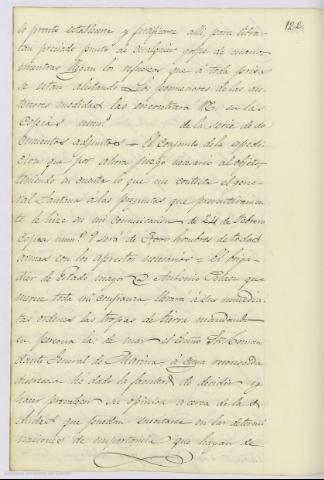 122
lo pronto establecerse y fortificarse alli, para librar
tan preciado punto de cualquier golpe de mano
mientras llegan los refuerzos que á toda prisa
se estan alistando. Los pormenores de las an-
teriores medidas las encontrará V.E. en las
copias num.º de la serie de do-
cumentos adjuntos. El conjunto de la espedi-
cion que por ahora juzgo necesario al objeto,
teniendo en cuenta lo que me contesta el gene-
ral Santana á las preguntas que preventivamen-
te le hice en mi comunicacion de 24 de Febrero
copia num.º 9 será de hombres de todas
armas con los aprestos necesarios. El briga-
dier de Estado mayor D. Antonio Pelaez que
merece toda mi confianza llevará á sus inmedia-
tas ordenes las tropas de tierra mandando
en persona las de mar el Escmo Sr. Coman-
dante General de Marina, á cuya reconocida
esperiencia he dado la facultad de decidir y
hacer prevalecer su opinion acerca de las
dudas que puedan suscitarse en las determi-
naciones de importancia que hayan de